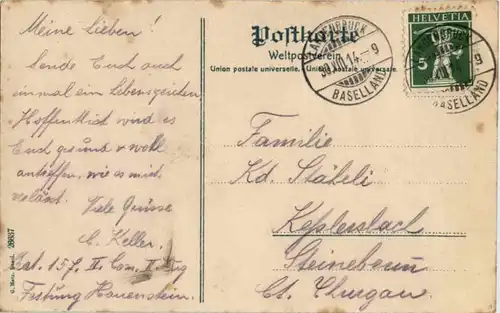 Postkarte
Weltpostverein
Union postale universelle. Unione postale universale.
HELVETIA
5
LANGENBRUCK
30.VIII.14.-9
BASELLAND
9
BASELLAND
Meine Lieben!
Sende Euch auch
einmal ein Lebenszeichen
Hoffentlich wird es
Euch gesund & wohl
antreffen, wie es mich
verlässt.
Viele Grüsse
E. Keller.
Bat. 157. II. Com. I. Zug
Festung Hauenstein.
Familie
Kd. Stäheli
Kesslersbach
Steinebrunn
Ct. Thurgau
G. Metz, Basel. 26557